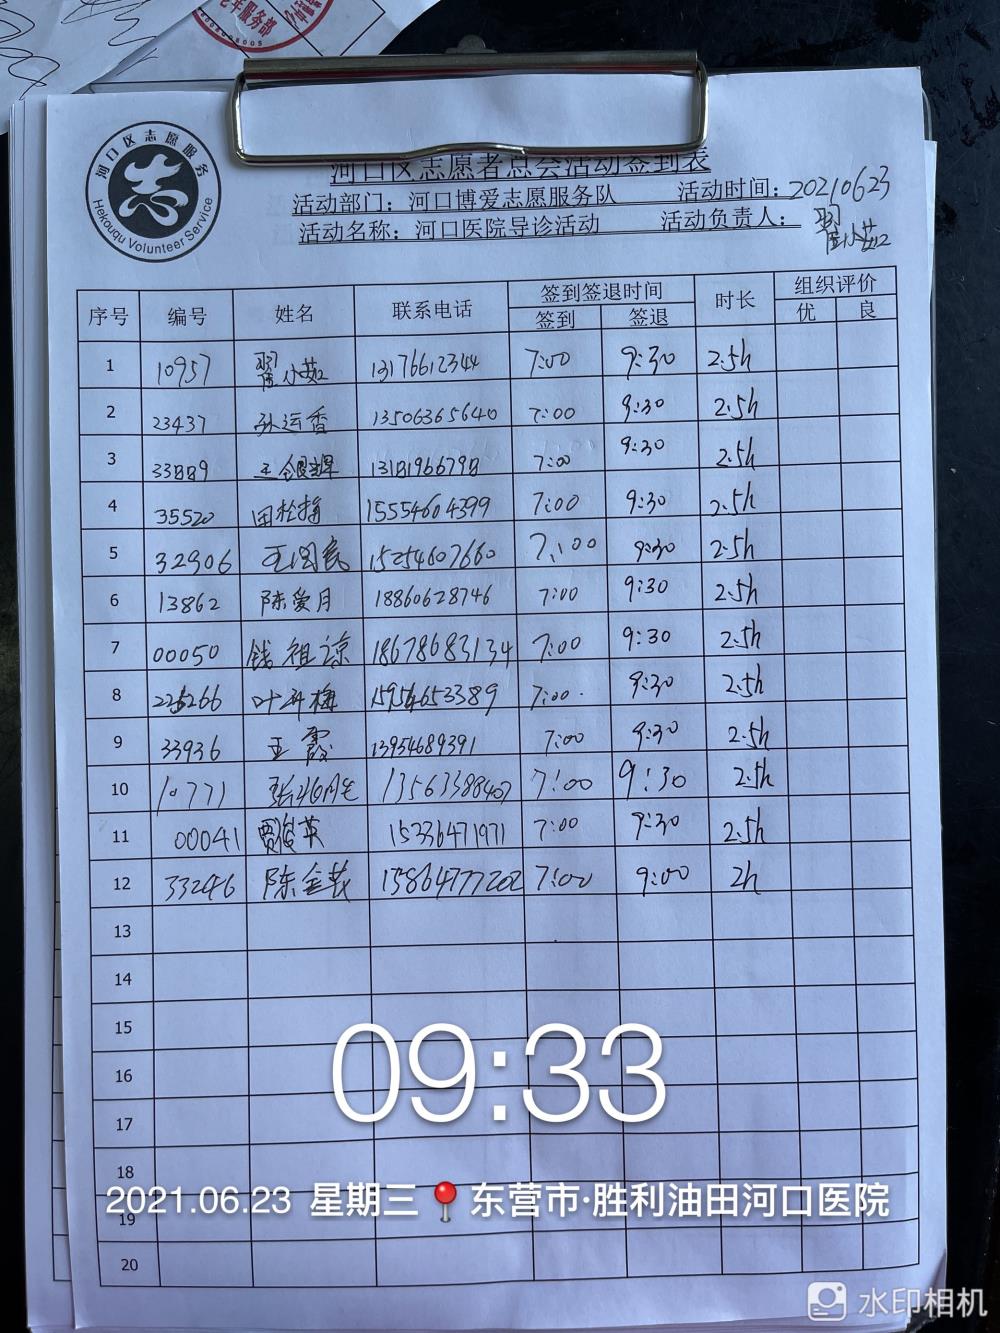 老年服务部
河口区志愿服务
Hekouqu Volunteer Service
河口区志愿者总会活动签到表
活动部门：河口博爱志愿服务队 活动时间：20210623
活动名称：河口医院导诊活动 活动负责人：翟小茹
序号 编号 姓名 联系电话 签到签退时间 时长 组织评价
签到 签退 优 良
1 10957 翟小茹 13176612344 7:00 9:30 2.5h
2 23437 孙运香 13506365640 7:00 9:30 2.5h
3 33889 王银翠 13181966798 7:00 9:30 2.5h
4 35520 田松梅 15554604399 7:00 9:30 2.5h
5 32906 王国良 15254607660 7:00 9:30 2.5h
6 13862 陈爱月 18860628746 7:00 9:30 2.5h
7 00050 钱祖谅 18678683134 7:00 9:30 2.5h
8 226266 叶开梅 15954653389 7:00 9:30 2.5h
9 33936 王霞 13954689391 7:00 9:30 2.5h
10 10771 13563388407 7:00 9:30 2.5h
11 00041 贾俊英 15336471971 7:00 9:30 2.5h
12 33246 陈金芬 15864777202 7:00 9:00 2h
13
14
15
16
17
18
19
20
09:33
2021.06.23 星期三 东营市·胜利油田河口医院
水印相机